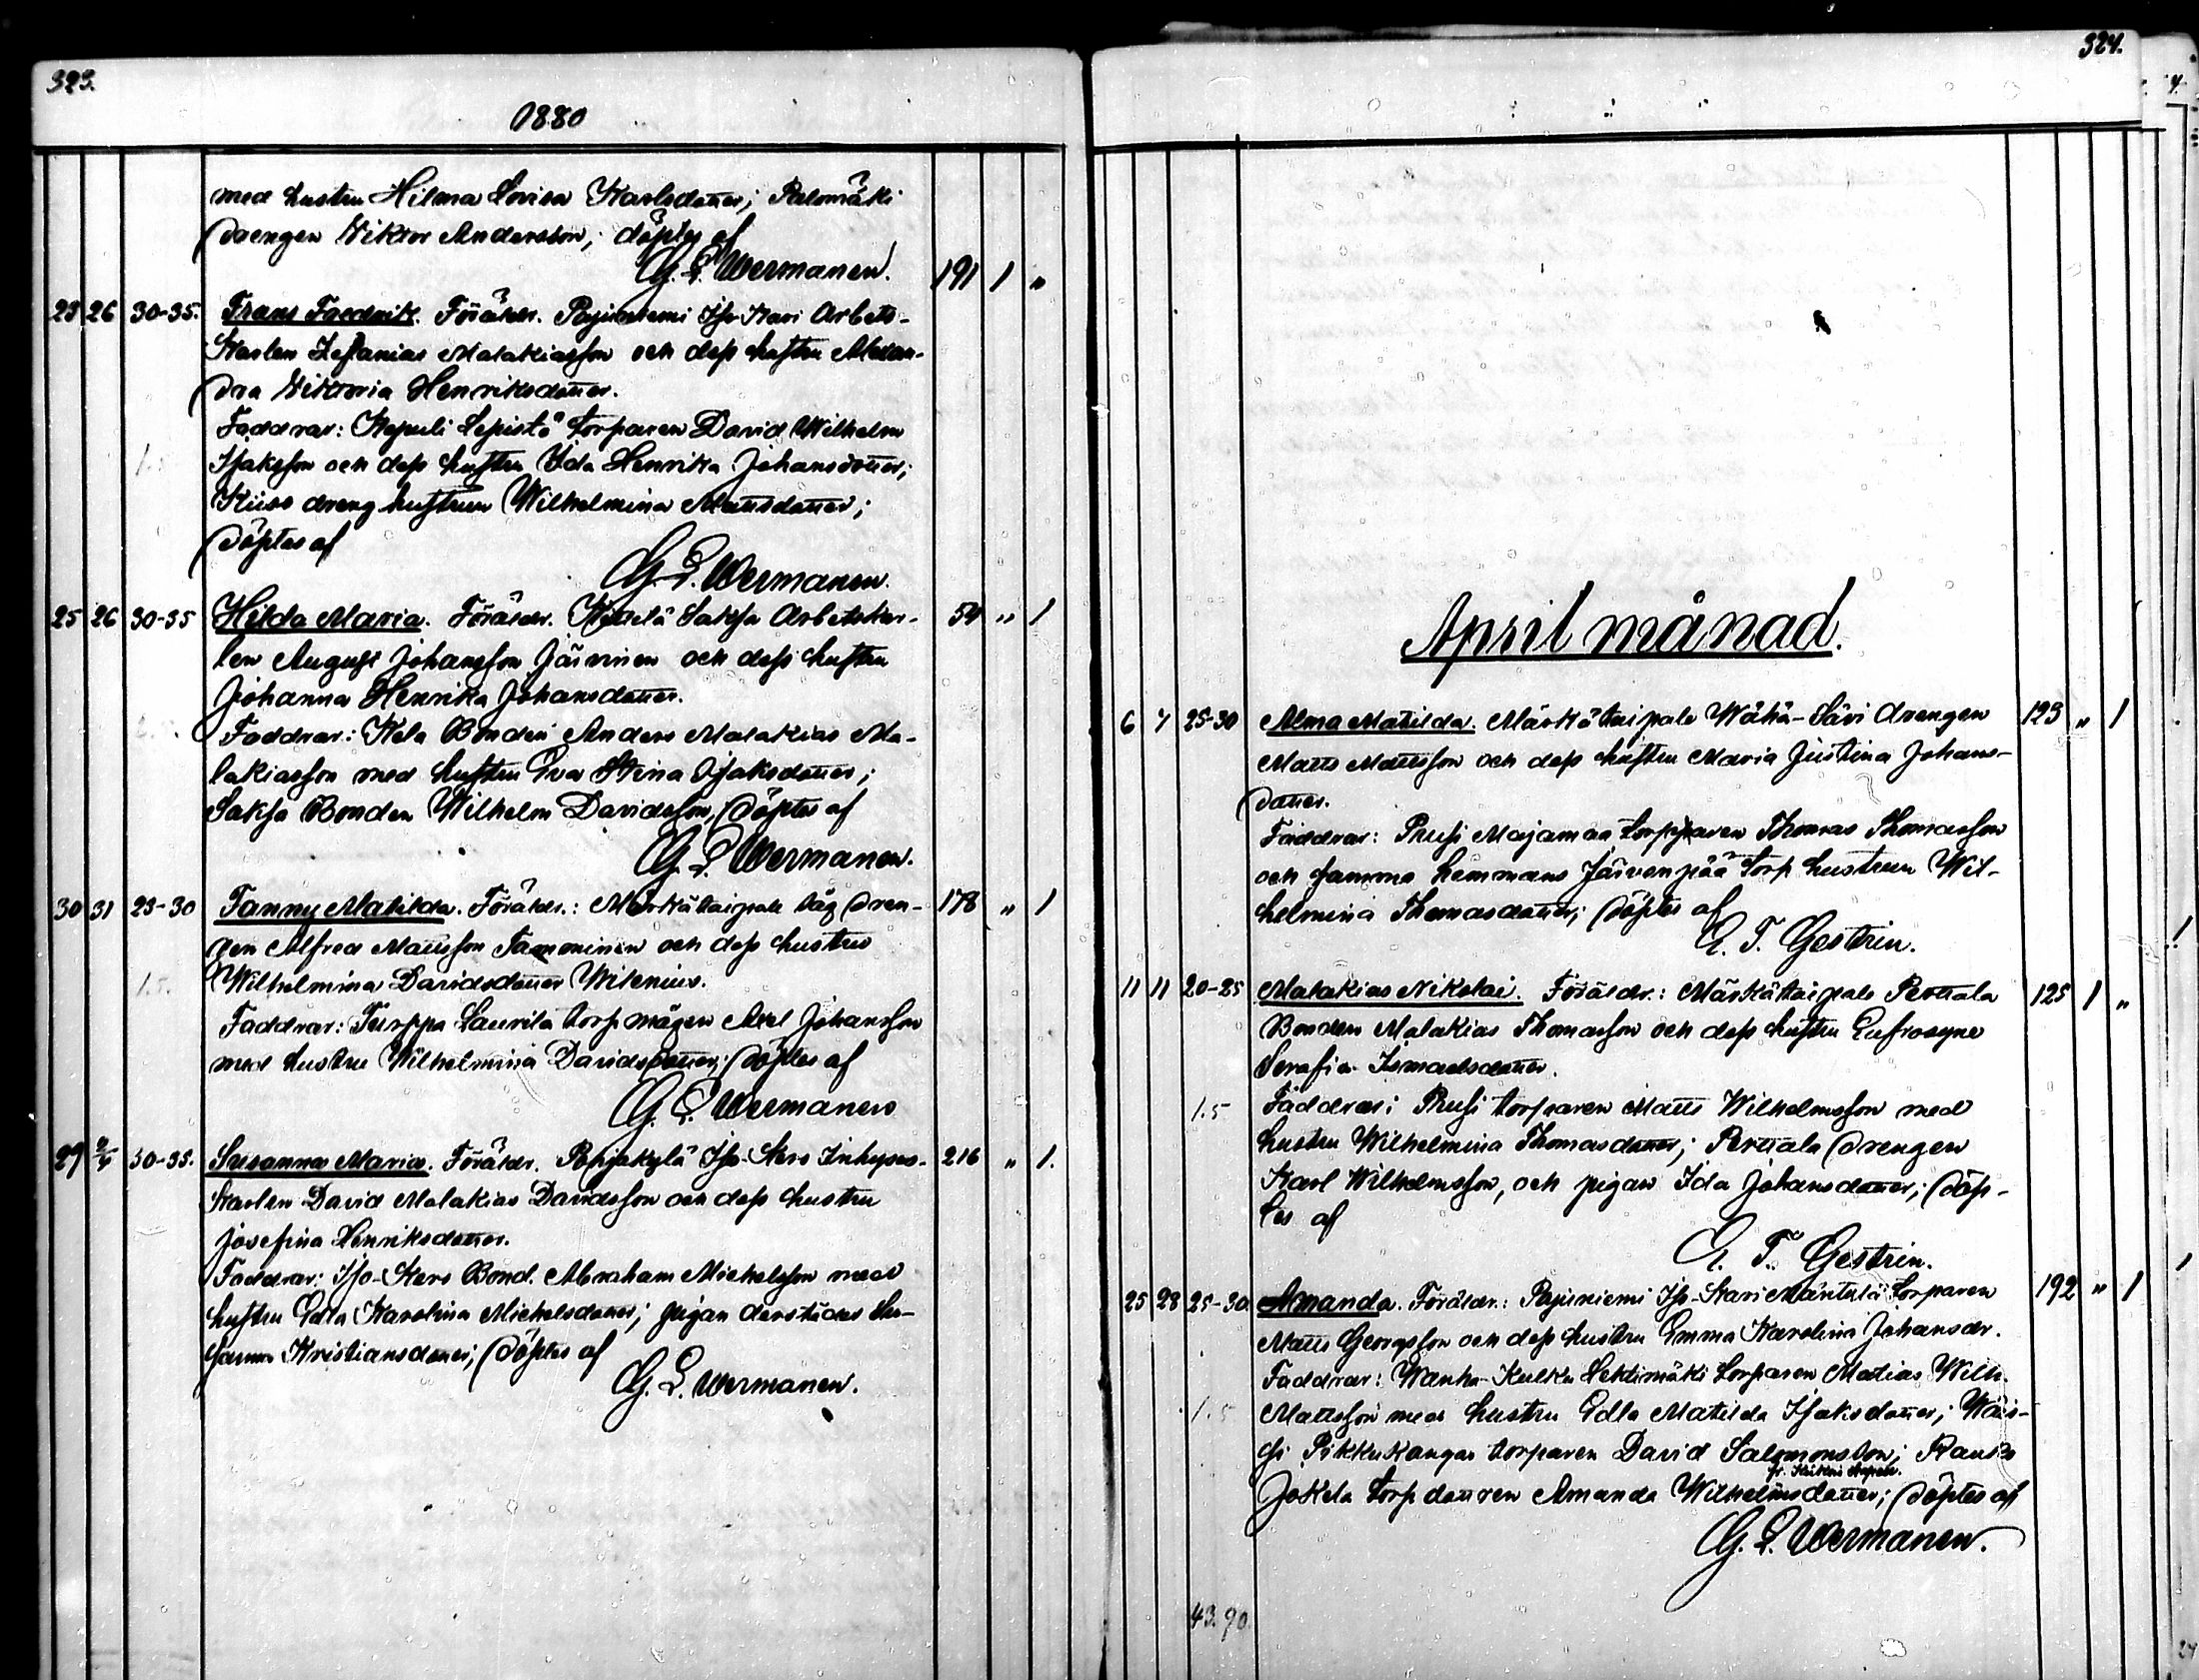 323.
1880
med hustru Hilma Lovisa Karlsdotter; Palomäki
drengen Viktor Andersson; döptes af
G. L. Wermanen.
23 26 30-35. Frans Fredrik. Föräldr. Pajuniemi Iso-Kari Arbets- 191 1 "
karlen Zefanias Malakiasson och dess hustru Alexan-
dra Viktoria Henriksdotter.
Faddrar: Kepuli Sepistö torparen David Wilhelm
Isaksson och dess hustru Ida Henrika Johansdotter;
Kiiso dreng hustrun Wilhelmina Mattsdotter;
döptes af
G. L. Wermanen.
25 26 30-35 Hilda Maria. Föräldr. Saksa Arbetskar- 54 " 1
len August Johansson Järvinen och dess hustru
Johanna Henrika Johansdotter.
Faddrar: Kela Bonden Anders Malakias Ma-
lakiasson med hustru Eva Stina Isaksdotter;
Saksa Bonden Wilhelm Davidsson, döptes af
G. L. Wermanen.
30 31 23-30 Fanny Matilda. Föräldr.: Märkätaipale låg dren- 178 " 1
gen Alfred Mattsson Tamminen och dess hustru
1.5. Wilhelmina Davidsdotter Witenius.
Faddrar: Turppa Laurila torp mågen Axel Johansson
med hustru Wilhelmina Davidsdotter; döptes af
G. L. Wermanen
29 2/4 30-35. Susanna Maria. Föräldr. Pohjakylä Iso-Kero Inhyses- 216 " 1.
karlen David Malakias Davidsson och dess hustru
Josefina Henriksdotter.
Faddrar: Iso-Kero Bond. Abraham Michelsson med
hustru Edla Karolina Michelsdotter; pigan derstädes Su-
sanna Kristiansdotter; döptes af
G. L. Wermanen.
324.
April månad.
6 7 25-30 Alma Matilda. Märkätaipale Wähä-Sävi drengen 123 " 1
Matts Mattsson och dess hustru Maria Justina Johans-
dotter.
Faddrar: Prusi Majamaa torpparen Thomas Thomasson
och samma hemmans Järvenpää torp hustrun Wil-
helmina Thomasdotter; döptes af
G. T. Gestrin.
11 11 20-25 Malakias Nikolai. Föräldr.: Märkätaipale Perttala 125 1 "
Bonden Malakias Thomasson och dess hustru Eufrosyne
Serafia Ismaelsdotter.
1.5 Faddrar: Prusi torparen Matts Wilhelmsson med
hustru Wilhelmina Thomasdotter; Perttala drengen
Karl Wilhelmsson, och pigan Ida Johansdotter; döp-
tes af
G. T. Gestrin.
25 28 25-30 Amanda. Föräldr.: Pajuniemi Iso-Kari Mäntylä torparen 192 " 1
Matts Georgsson och dess hustru Emma Karolina Johansdr.
Faddrar: Wanha-Kulku Lehtimäki torparen Matias Wilh.
1.5 Mattsson med hustru Edla Matilda Isaksdotter; Wäis-
si Pikkukangas torparen David Salomonsson; Rauko
Jokela torp dottren Amanda Wilhelmsdotter; döptes af
G. L. Wermanen.
43.90.